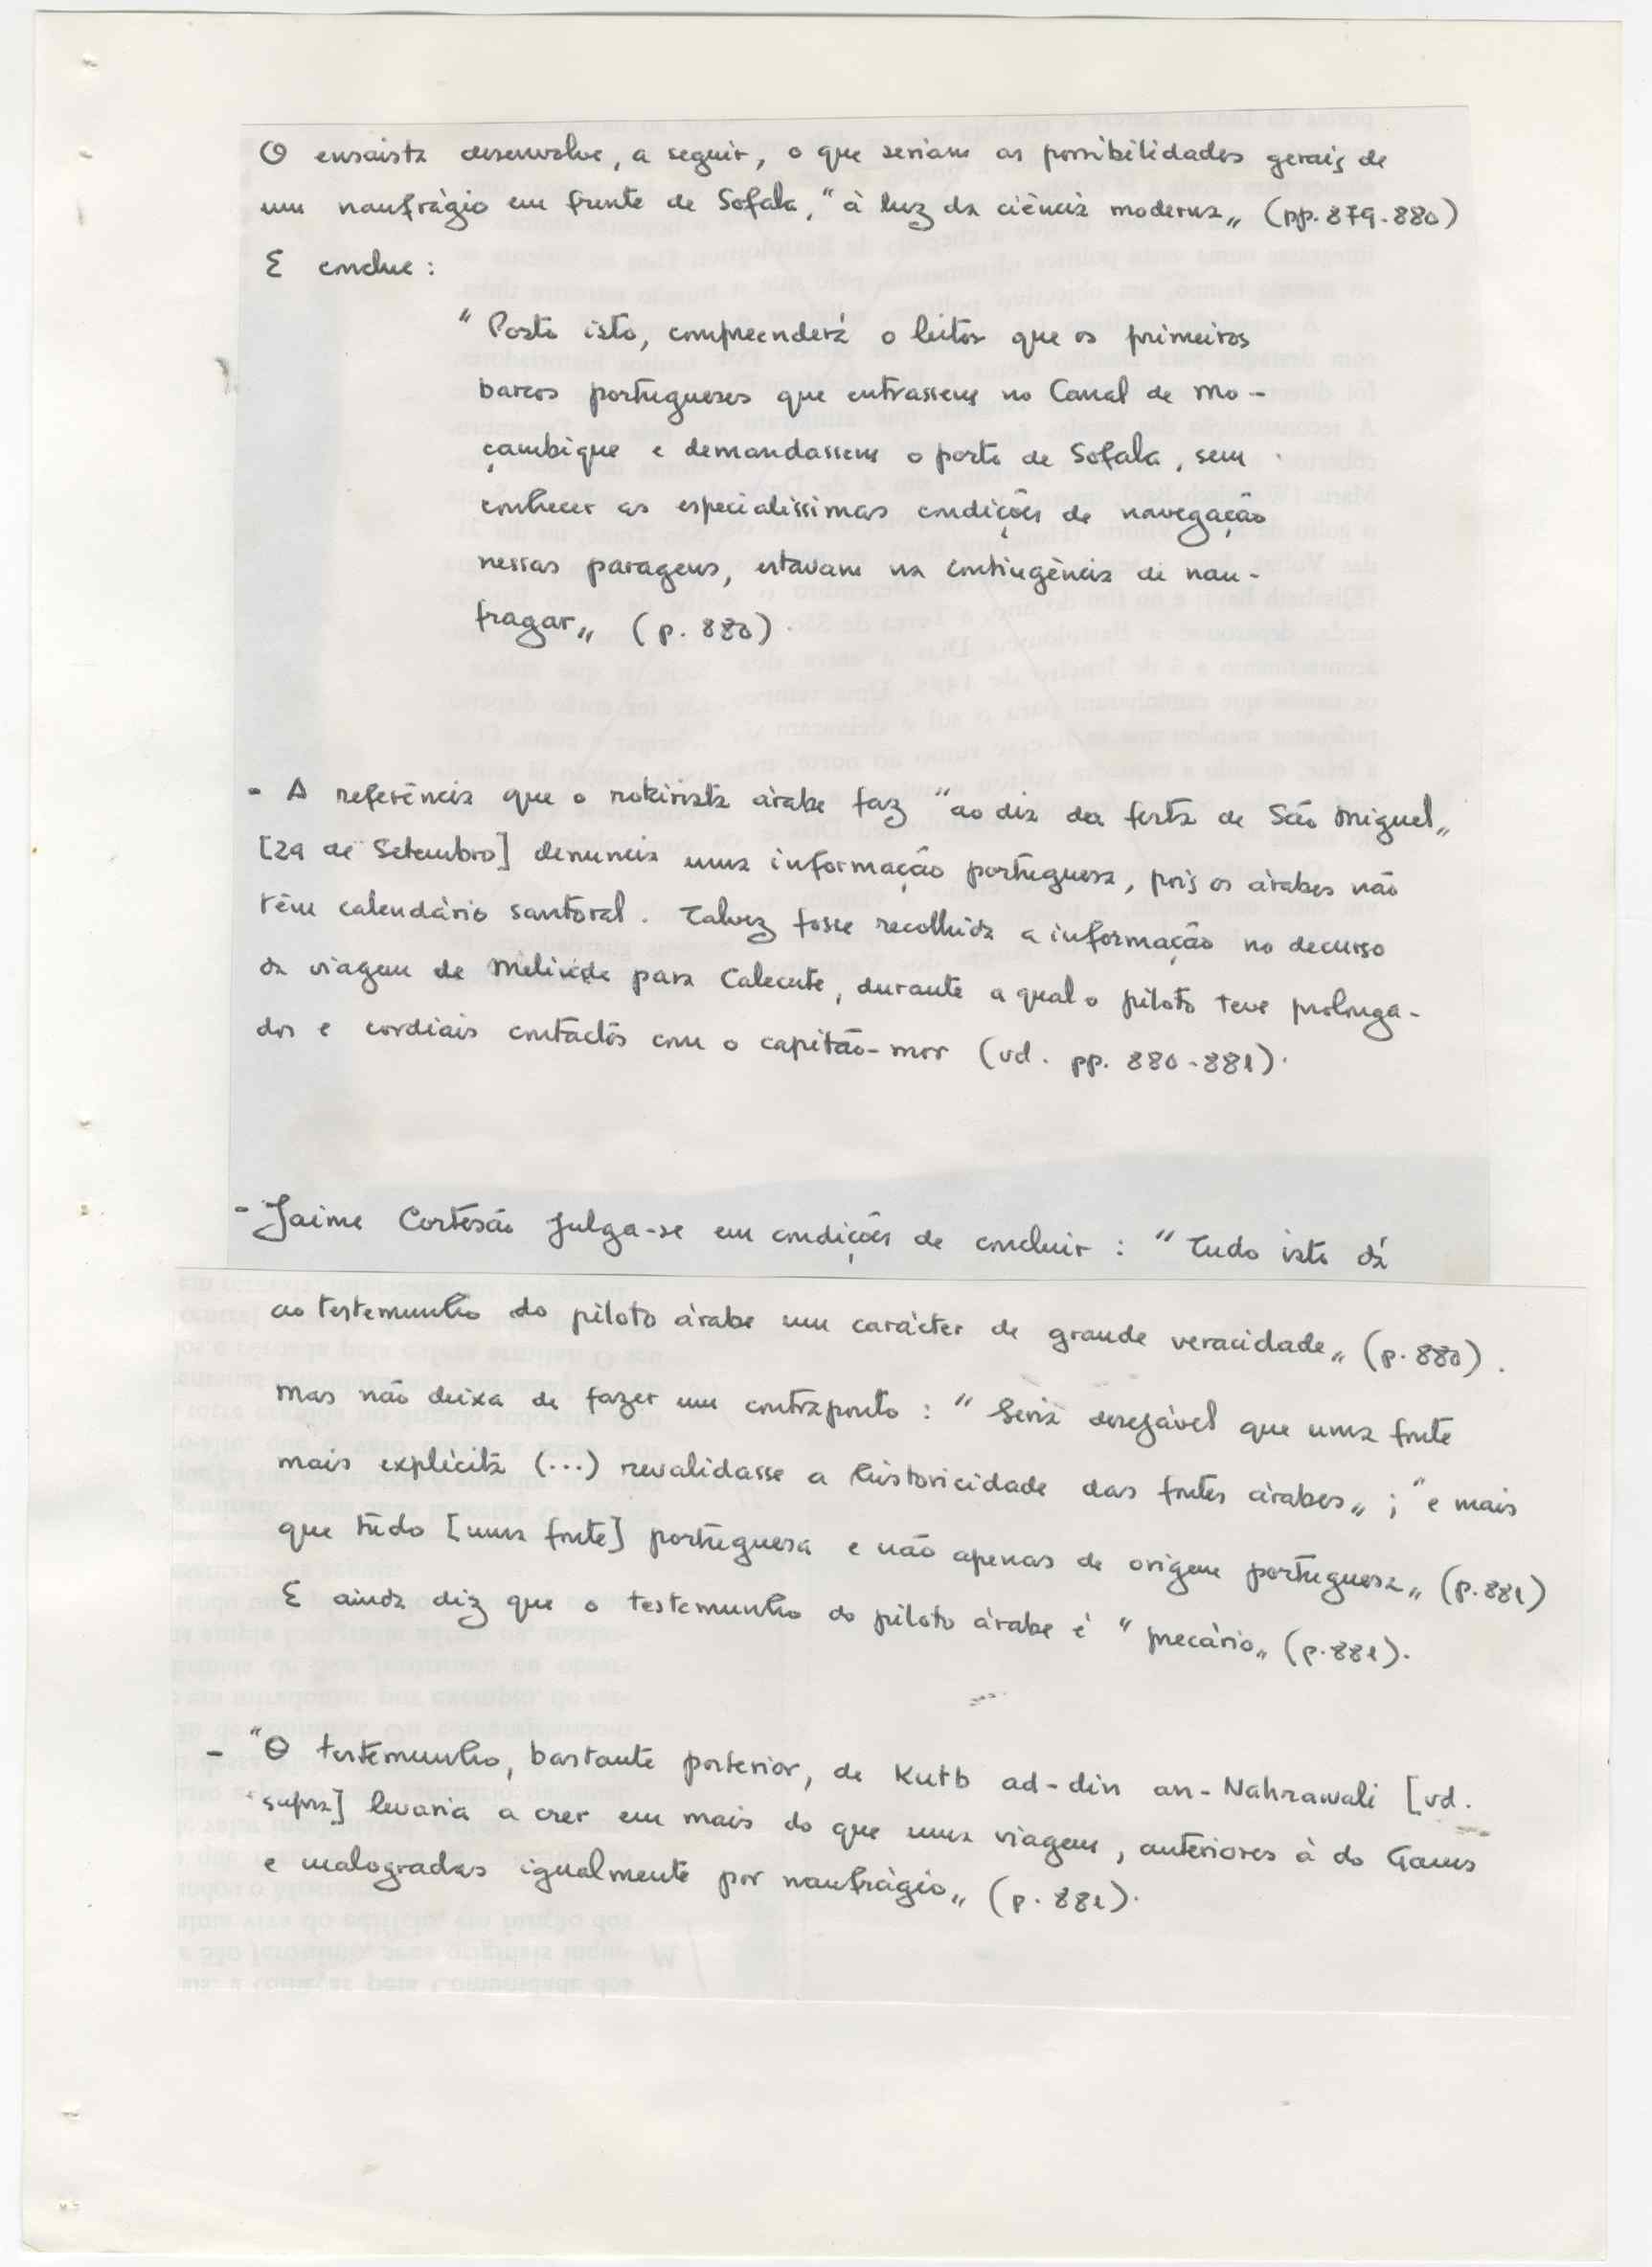 O ensaista desenvolve, a seguir, o que seriam as possibilidades gerais de
um naufrágio em frente de Sofala, "à luz da ciência moderna" (pp. 879-880)
E conclue:
"Posto isto, compreenderá o leitor que os primeiros
barcos portugueses que entrassem no Canal de Mo-
çambique e demandassem o porto de Sofala, sem
conhecer as especialíssimas condições de navegação
nessas paragens, estavam na contingência de nau-
fragar" (p. 880)
- A referência que o roteirista árabe faz "ao dia da festa de São Miguel"
[29 de Setembro] denuncia uma informação portuguesa, pois os árabes não
têm calendário santoral. Talvez fosse recolhida a informação no decurso
da viagem de Melinde para Calecute, durante a qual o piloto teve prolonga-
dos e cordiais contactos com o capitão-mor (vd. pp. 880-881).
- Jaime Cortesão julga-se em condições de concluir: "Tudo isto dá
ao testemunho do piloto árabe um carácter de grande veracidade" (p. 880).
Mas não deixa de fazer um contraponto: "Seria desejável que uma fonte
mais explícita (...) revalidasse a historicidade das fontes árabes"; "e mais
que tudo [uma fonte] portuguesa e não apenas de origem portuguesa" (p. 881)
E ainda diz que o testemunho do piloto árabe é "precário" (p. 881).
- "O testemunho, bastante posterior, de Kutb ad-din an-Nahrawali [vd.
supra] levaria a crer em mais do que uma viagem, anteriores à do Gama
e malogradas igualmente por naufrágio" (p. 881).